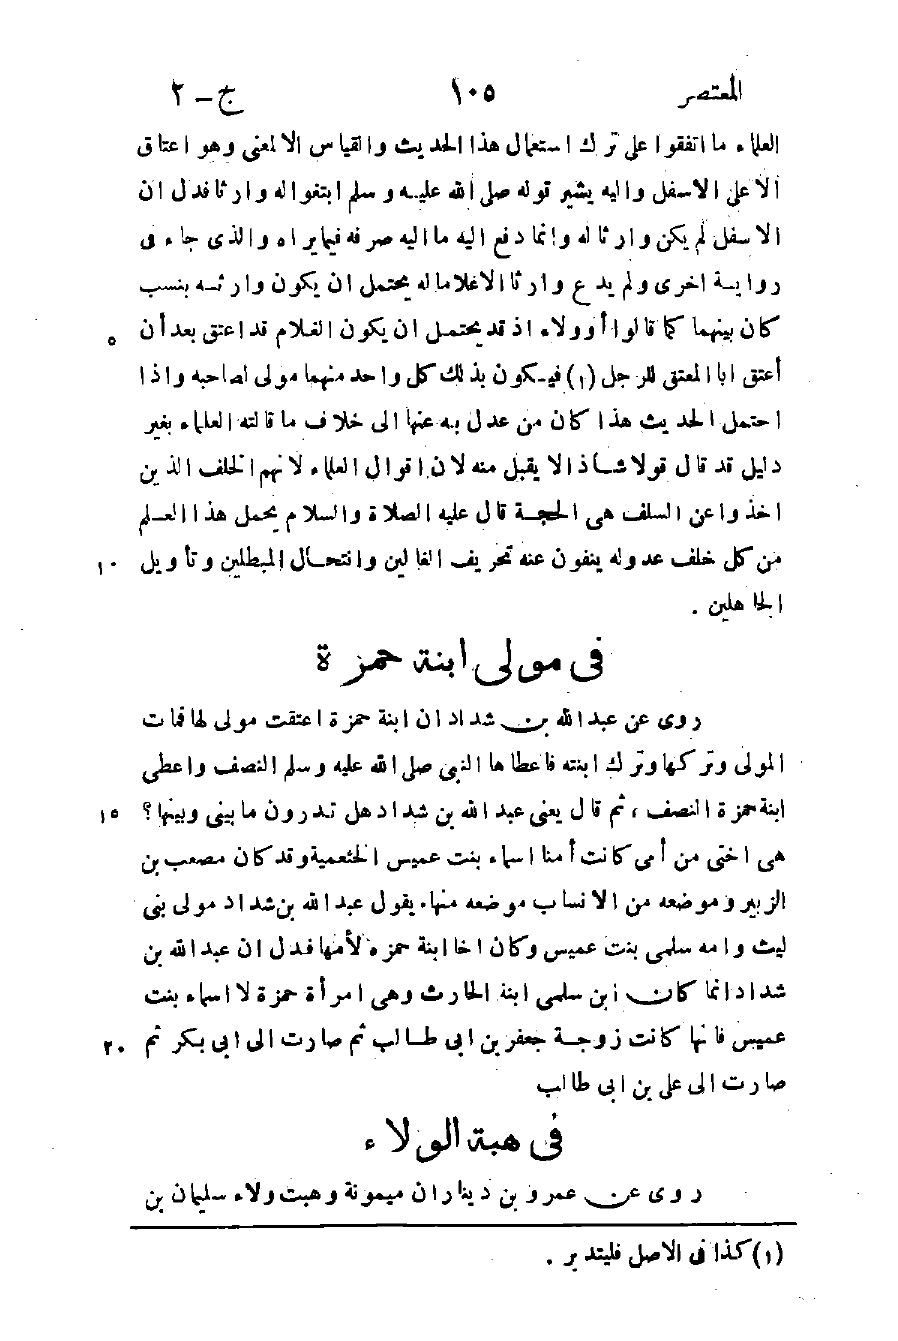 المعتصر ١٠٥ ج – ٢
العلماء ما اتفقوا على ترك استعمال هذا الحديث والقياس الا لمعنى وهو اعتاق
الاعلى الاسفل واليه يشير قوله صلى الله عليه وسلم ابتغوا له وارثا فدل ان
الاسفل لم يكن وارثا له وانما دفع اليه ما اليه صرفه فيما يراه والذى جاء فى
رواية اخرى ولم يدع وارثا الا غلاما له يحتمل ان يكون وارثه بنسب
كان بينهما كما قالوا أو ولاء اذ قد يحتمل ان يكون الغلام قد اعتق بعد أن ٥
أعتق ابا المعتق للرجل (١) فيكون بذلك كل واحد منهما مولى لصاحبه واذا
احتمل الحديث هذا كان من عدل به عنها الى خلاف ما قالته العلماء بغير
دليل قد قال قولا شاذا لا يقبل منه لان اقوال العلماء لانهم الخلف الذين
اخذوا عن السلف هى الحجة قال عليه الصلاة والسلام يحمل هذا العلم
من كل خلف عدوله ينفون عنه تحريف الغالين وانتحال المبطلين وتأويل ١٠
الجاهلين .
فى مولى ابنة حمزة
روى عن عبد الله بن شداد ان ابنة حمزة اعتقت مولى لها فمات
المولى وتركها وترك ابنته فاعطاها النبى صلى الله عليه وسلم النصف واعطى
ابنة حمزة النصف ، ثم قال يعنى عبد الله بن شداد هل تدرون ما بينى وبينها؟ ١٥
هى اختى من أمى كانت أمنا اسماء بنت عميس الخثعمية وقد كان مصعب بن
الزبير وموضعه من الانساب موضعه منها، يقول عبد الله بن شداد مولى بنى
ليث وامه سلمى بنت عميس وكان اخا ابنة حمزه لأمها فدل ان عبد الله بن
شداد انما كان ابن سلمى ابنة الحارث وهى امرأة حمزة لا اسماء بنت
عميس فانها كانت زوجة جعفر بن ابى طالب ثم صارت الى ابى بكر ثم ٢٠
صارت الى على بن ابى طالب
فى هبة الولاء
روى عن عمرو بن دينار ان ميمونة وهبت ولاء سليمان بن
(١) كذا فى الاصل فليتدبر .